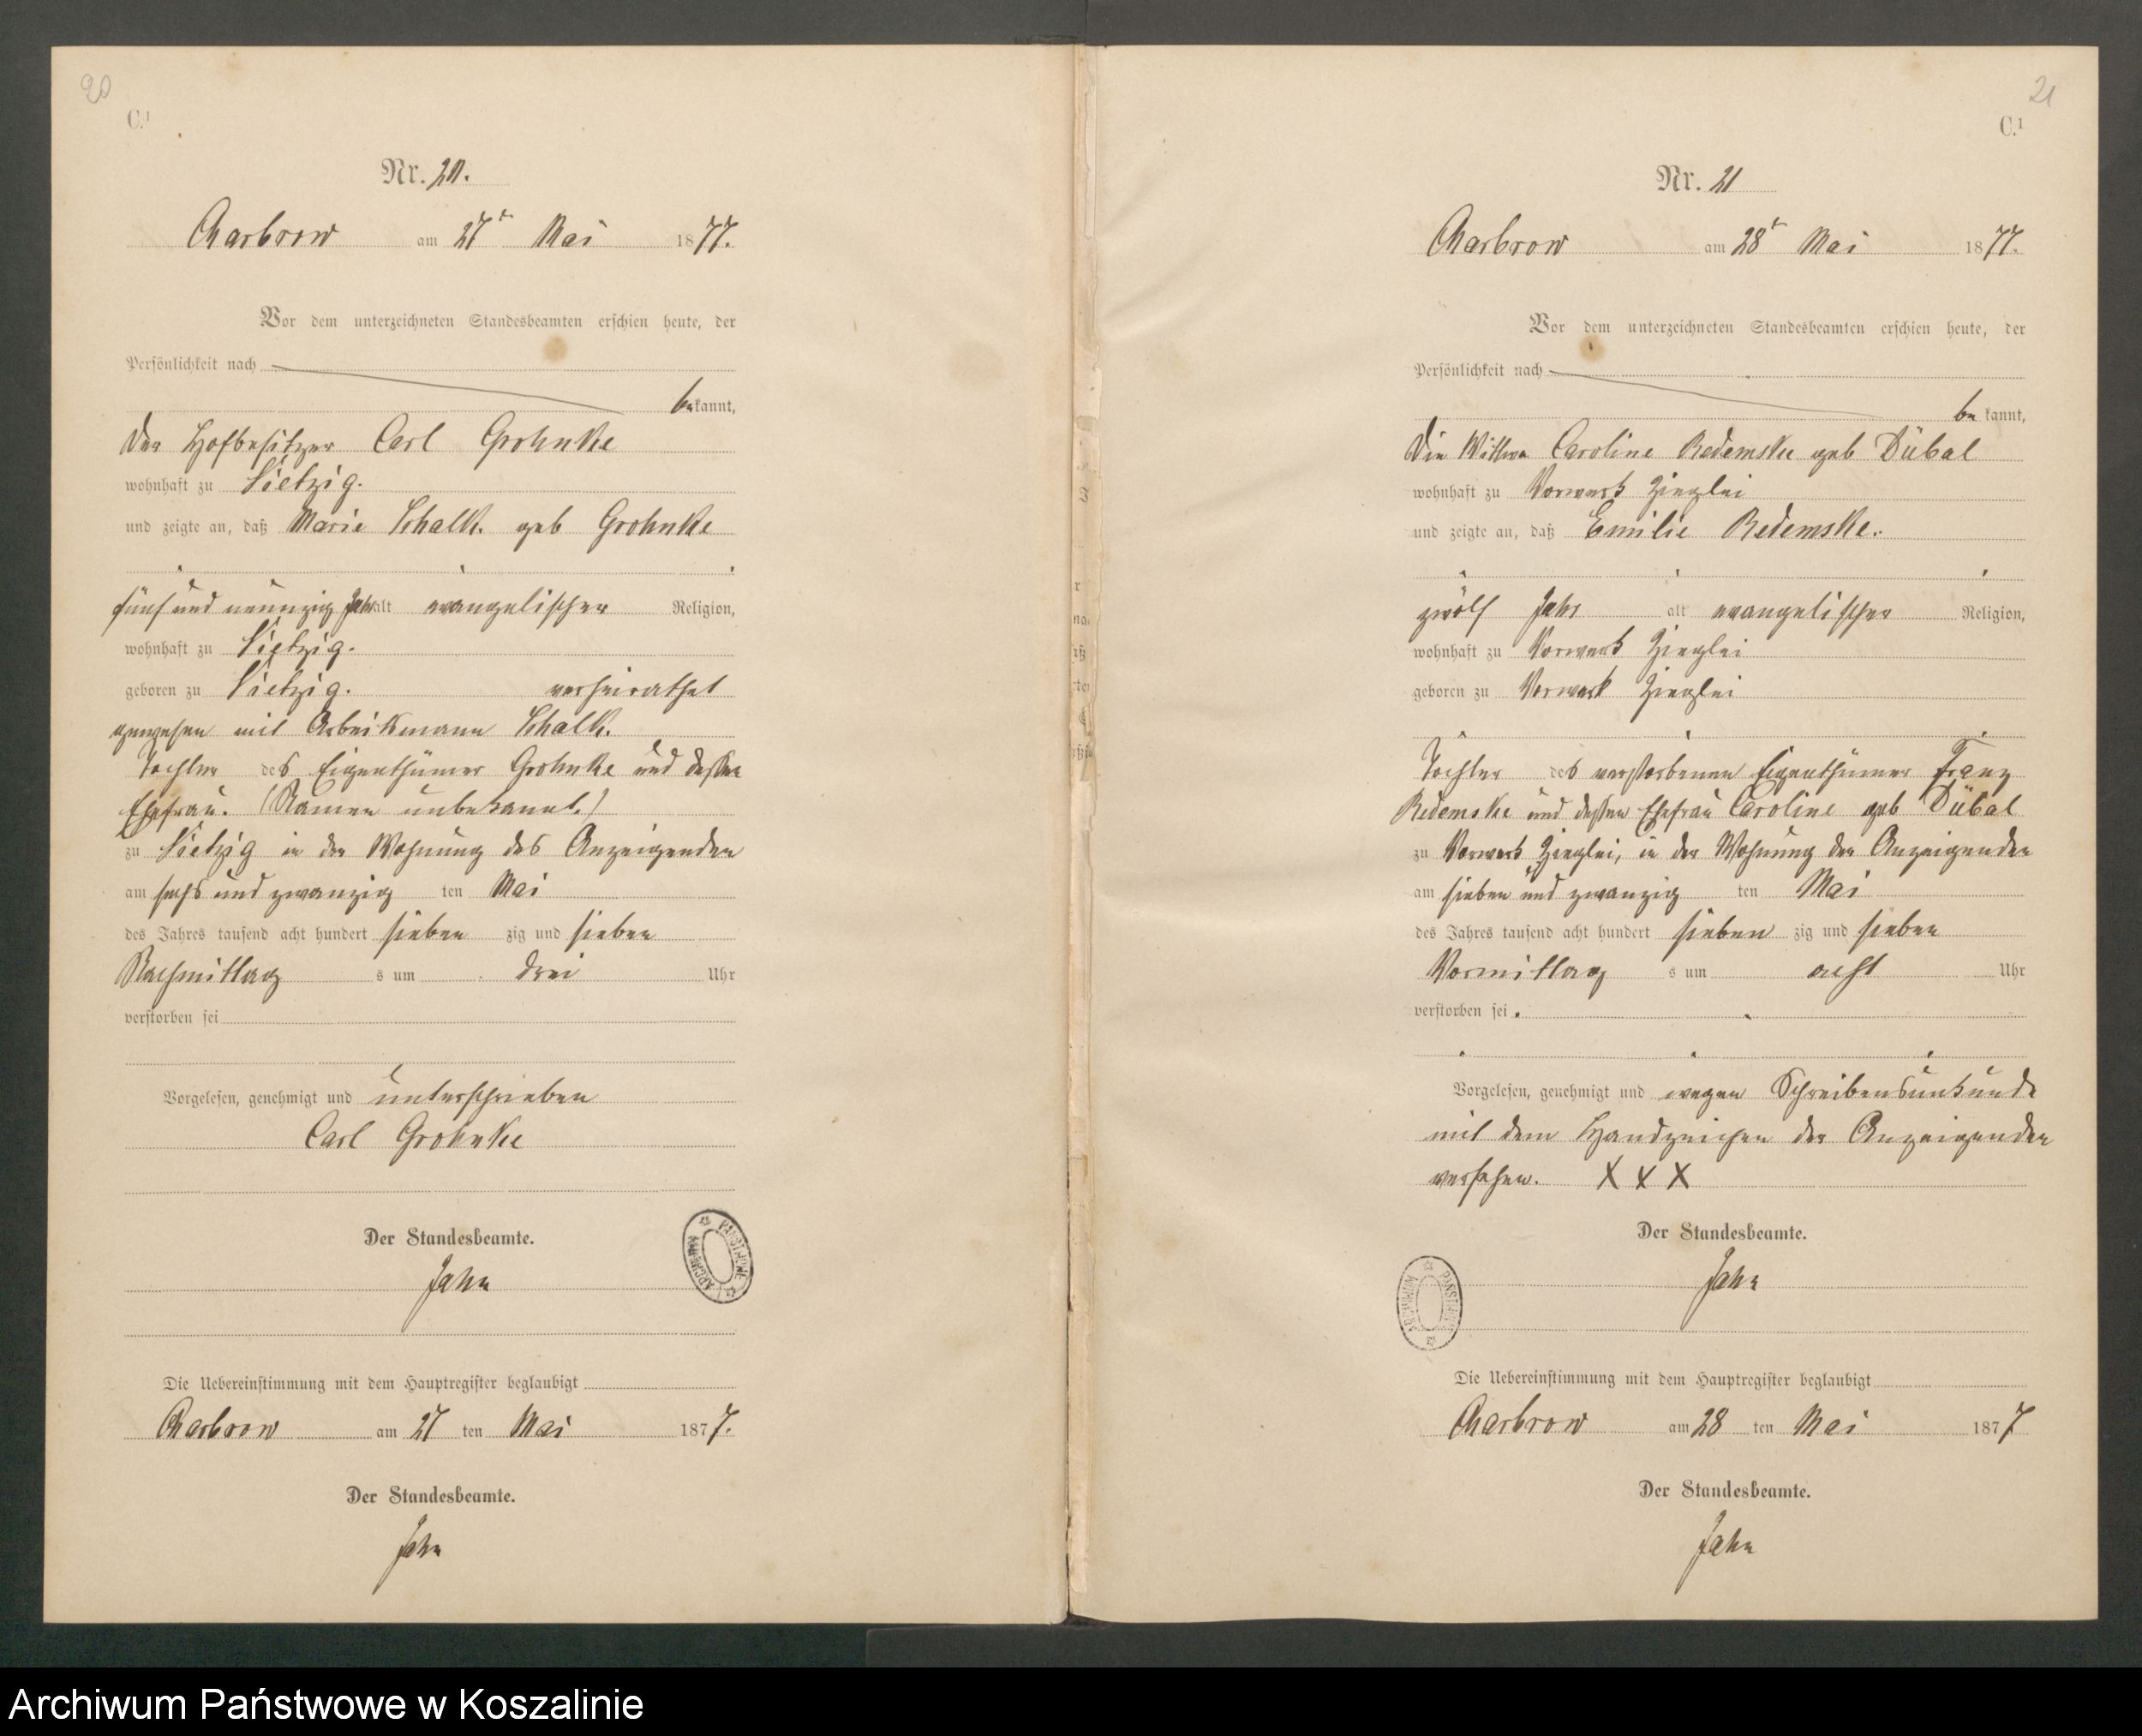 20
C.¹
Nr. 20.
Charbrow am 27ᵗ Mai 1877.
Vor dem unterzeichneten Standesbeamten erschien heute, der
Persönlichkeit nach
bekannt,
Der Hofbesitzer Carl Grohnke
wohnhaft zu Sietzig.
und zeigte an, daß Marie Schalk. geb Grohnke
fünf und neunzig Jahr alt evangelischer Religion,
wohnhaft zu Sietzig.
geboren zu Sietzig. verheirathet
gewesen mit Arbeitsmann Schalk.
Tochter des Eigenthümer Grohnke und dessen
Ehefrau. (Namen unbekannt.)
zu Sietzig in der Wohnung des Anzeigenden
am sechs und zwanzig ten Mai
des Jahres tausend acht hundert sieben zig und sieben
Nachmittag s um drei Uhr
verstorben sei
Vorgelesen, genehmigt und unterschrieben
Carl Grohnke
Der Standesbeamte.
Jahn
ARCHIWUM PAŃSTWOWE
Die Uebereinstimmung mit dem Hauptregister beglaubigt
Charbrow am 27 ten Mai 1877.
Der Standesbeamte.
Jahn
21
C.¹
Nr. 21
Charbrow am 28ᵗ Mai 1877.
Vor dem unterzeichneten Standesbeamten erschien heute, der
Persönlichkeit nach
be kannt,
Die Wittwe Caroline Redemske geb Dübal
wohnhaft zu Vorwerk Zieglei
und zeigte an, daß Emilie Redemske.
zwölf Jahr alt evangelischer Religion,
wohnhaft zu Vorwerk Zieglei
geboren zu Vorwerk Zieglei
Tochter des verstorbenen Eigenthümer Franz
Redemske und dessen Ehefrau Caroline geb Dübal
zu Vorwerk Zieglei, in der Wohnung der Anzeigenden
am sieben und zwanzig ten Mai
des Jahres tausend acht hundert sieben zig und sieben
Vormittag s um acht Uhr
verstorben sei.
Vorgelesen, genehmigt und wegen Schreibensunkunde
mit dem Handzeichen der Anzeigenden
versehen. X X X
Der Standesbeamte.
Jahn
ARCHIWUM PAŃSTWOWE
Die Uebereinstimmung mit dem Hauptregister beglaubigt
Charbrow am 28 ten Mai 1877
Der Standesbeamte.
Jahn
Archiwum Państwowe w Koszalinie